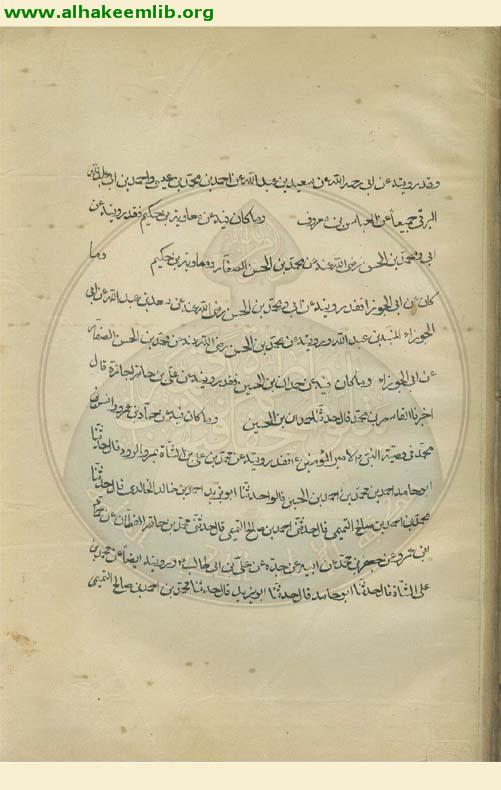 www.alhakeemlib.org
وقد رويته عن ابى رحمه الله عن سعد بن عبد الله عن احمد بن محمد بن عيسى واحمد بن ابى عبد الله
البرقى جميعاً عن العباس بن معروف وما كان فيه عن معاوية بن حكيم فقد رويته عن
ابى ومحمد بن الحسن رضى الله عنه عن محمد بن الحسن الصفار عن معاوية بن حكيم وما
كان عن ابى الجوزاء فقد رويته عن ابى ومحمد بن الحسن رضى الله عنه عن سعد بن عبد الله عن ابى
الجوزاء المنبه بن عبد الله ورويته عن محمد بن الحسن رضى الله عنه عن محمد بن الحسن الصفار
عن ابى الجوزاء وما كان فيه عن حمدان بن الحسين فقد رويته عن على بن حاتم اجازة قال
اخبرنا القاسم بن محمد قال حدثنا حمدان بن الحسين وما كان فيه عن حماد بن عمرو وانس بن
محمد فى وصية النبى لامير المؤمنين فقد رويته عن محمد بن على بن الشاة بمرو الرود قال حدثنا
ابو حامد احمد بن محمد بن احمد بن الحسين قال حدثنا ابو يزيد احمد بن خالد الخالدى قال حدثنا
محمد بن احمد بن صالح التميمى قال حدثنى احمد بن صالح التميمى قال حدثنى محمد بن حاتم القطان عن حماد
ابن عمرو عن جعفر بن محمد عن ابيه عن جده عن على بن ابى طالب ورويته ايضا عن محمد بن
على الشاة قال حدثنا ابو حامد قال حدثنا ابو يزيد قال حدثنا محمد بن احمد بن صالح التميمى